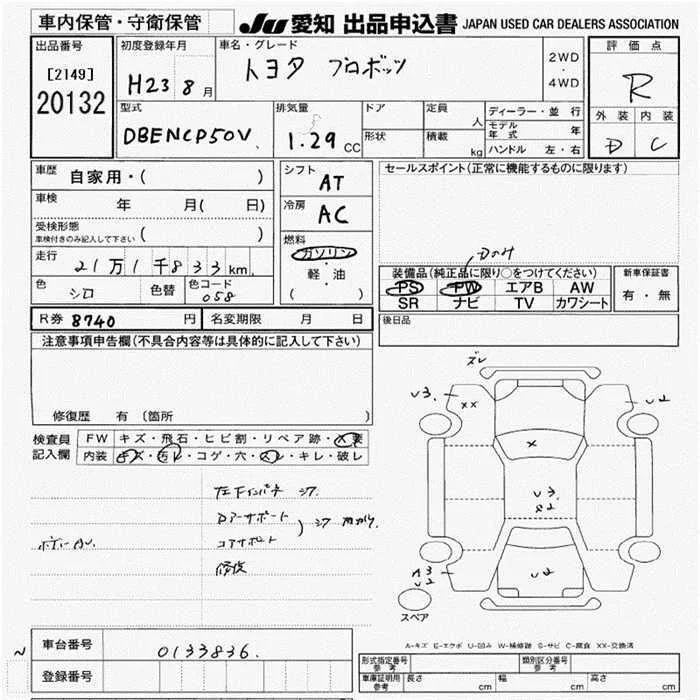 車内保管・守衛保管
JU 愛知 出品申込書 JAPAN USED CAR DEALERS ASSOCIATION
出品番号
[2149]
20132
初度登録年月
H23 8月
車名・グレード
トヨタ プロボックス
2WD
・
4WD
評価点
R
外装 内装
D C
型式
DBENCP50V
排気量
1.29 CC
ドア
形状
定員
人
積載
kg
ディーラー・並行
モデル年式 年
ハンドル 左・右
車歴
自家用・( )
車検 年 月( 日)
受検形態
車検付きのみ記入して下さい ( )
走行
21万1千833km
色
シロ
色替
色コード
058
シフト
AT
冷房
AC
燃料
ガソリン
・
軽・油
( )
セールスポイント(正常に機能するものに限ります)
Dのみ
装備品(純正品に限り○をつけてください)
PS PW エアB AW
SR ナビ TV カワシート
新車保証書
有・無
後日品
R券 8740 円
名変期限 月 日
注意事項申告欄(不具合内容等は具体的に記入して下さい)
修復歴 有〔箇所 〕
検査員記入欄
FW キズ・飛石・ヒビ割・リペア跡・X要
内装 キズ・汚レ・コゲ・穴・スレ・キレ・破レ
左Fインパネ
Dアーサポート
コアサポート
修復
ズレ
U3
XX
U2
X
U3
U2
A3
U2
スペア
A-キズ E-エクボ U-凹み W-補修跡 S-サビ C-腐食 XX-交換済
車台番号
0133836
登録番号
形式指定番号
参考
類別区分番号
参考
車庫証明用
参考
長さ cm 幅 cm 高さ cm